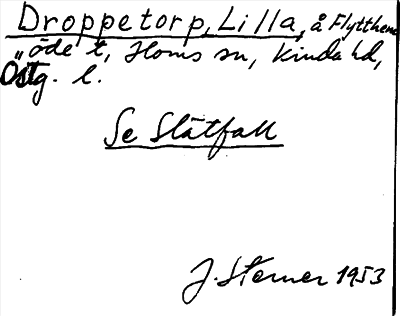 Droppetorp, Lilla, å Flytthem
"öde t, Horns sn, Kinda hd,
Östg. l.
Se Slätfall
J. Sterner 1953